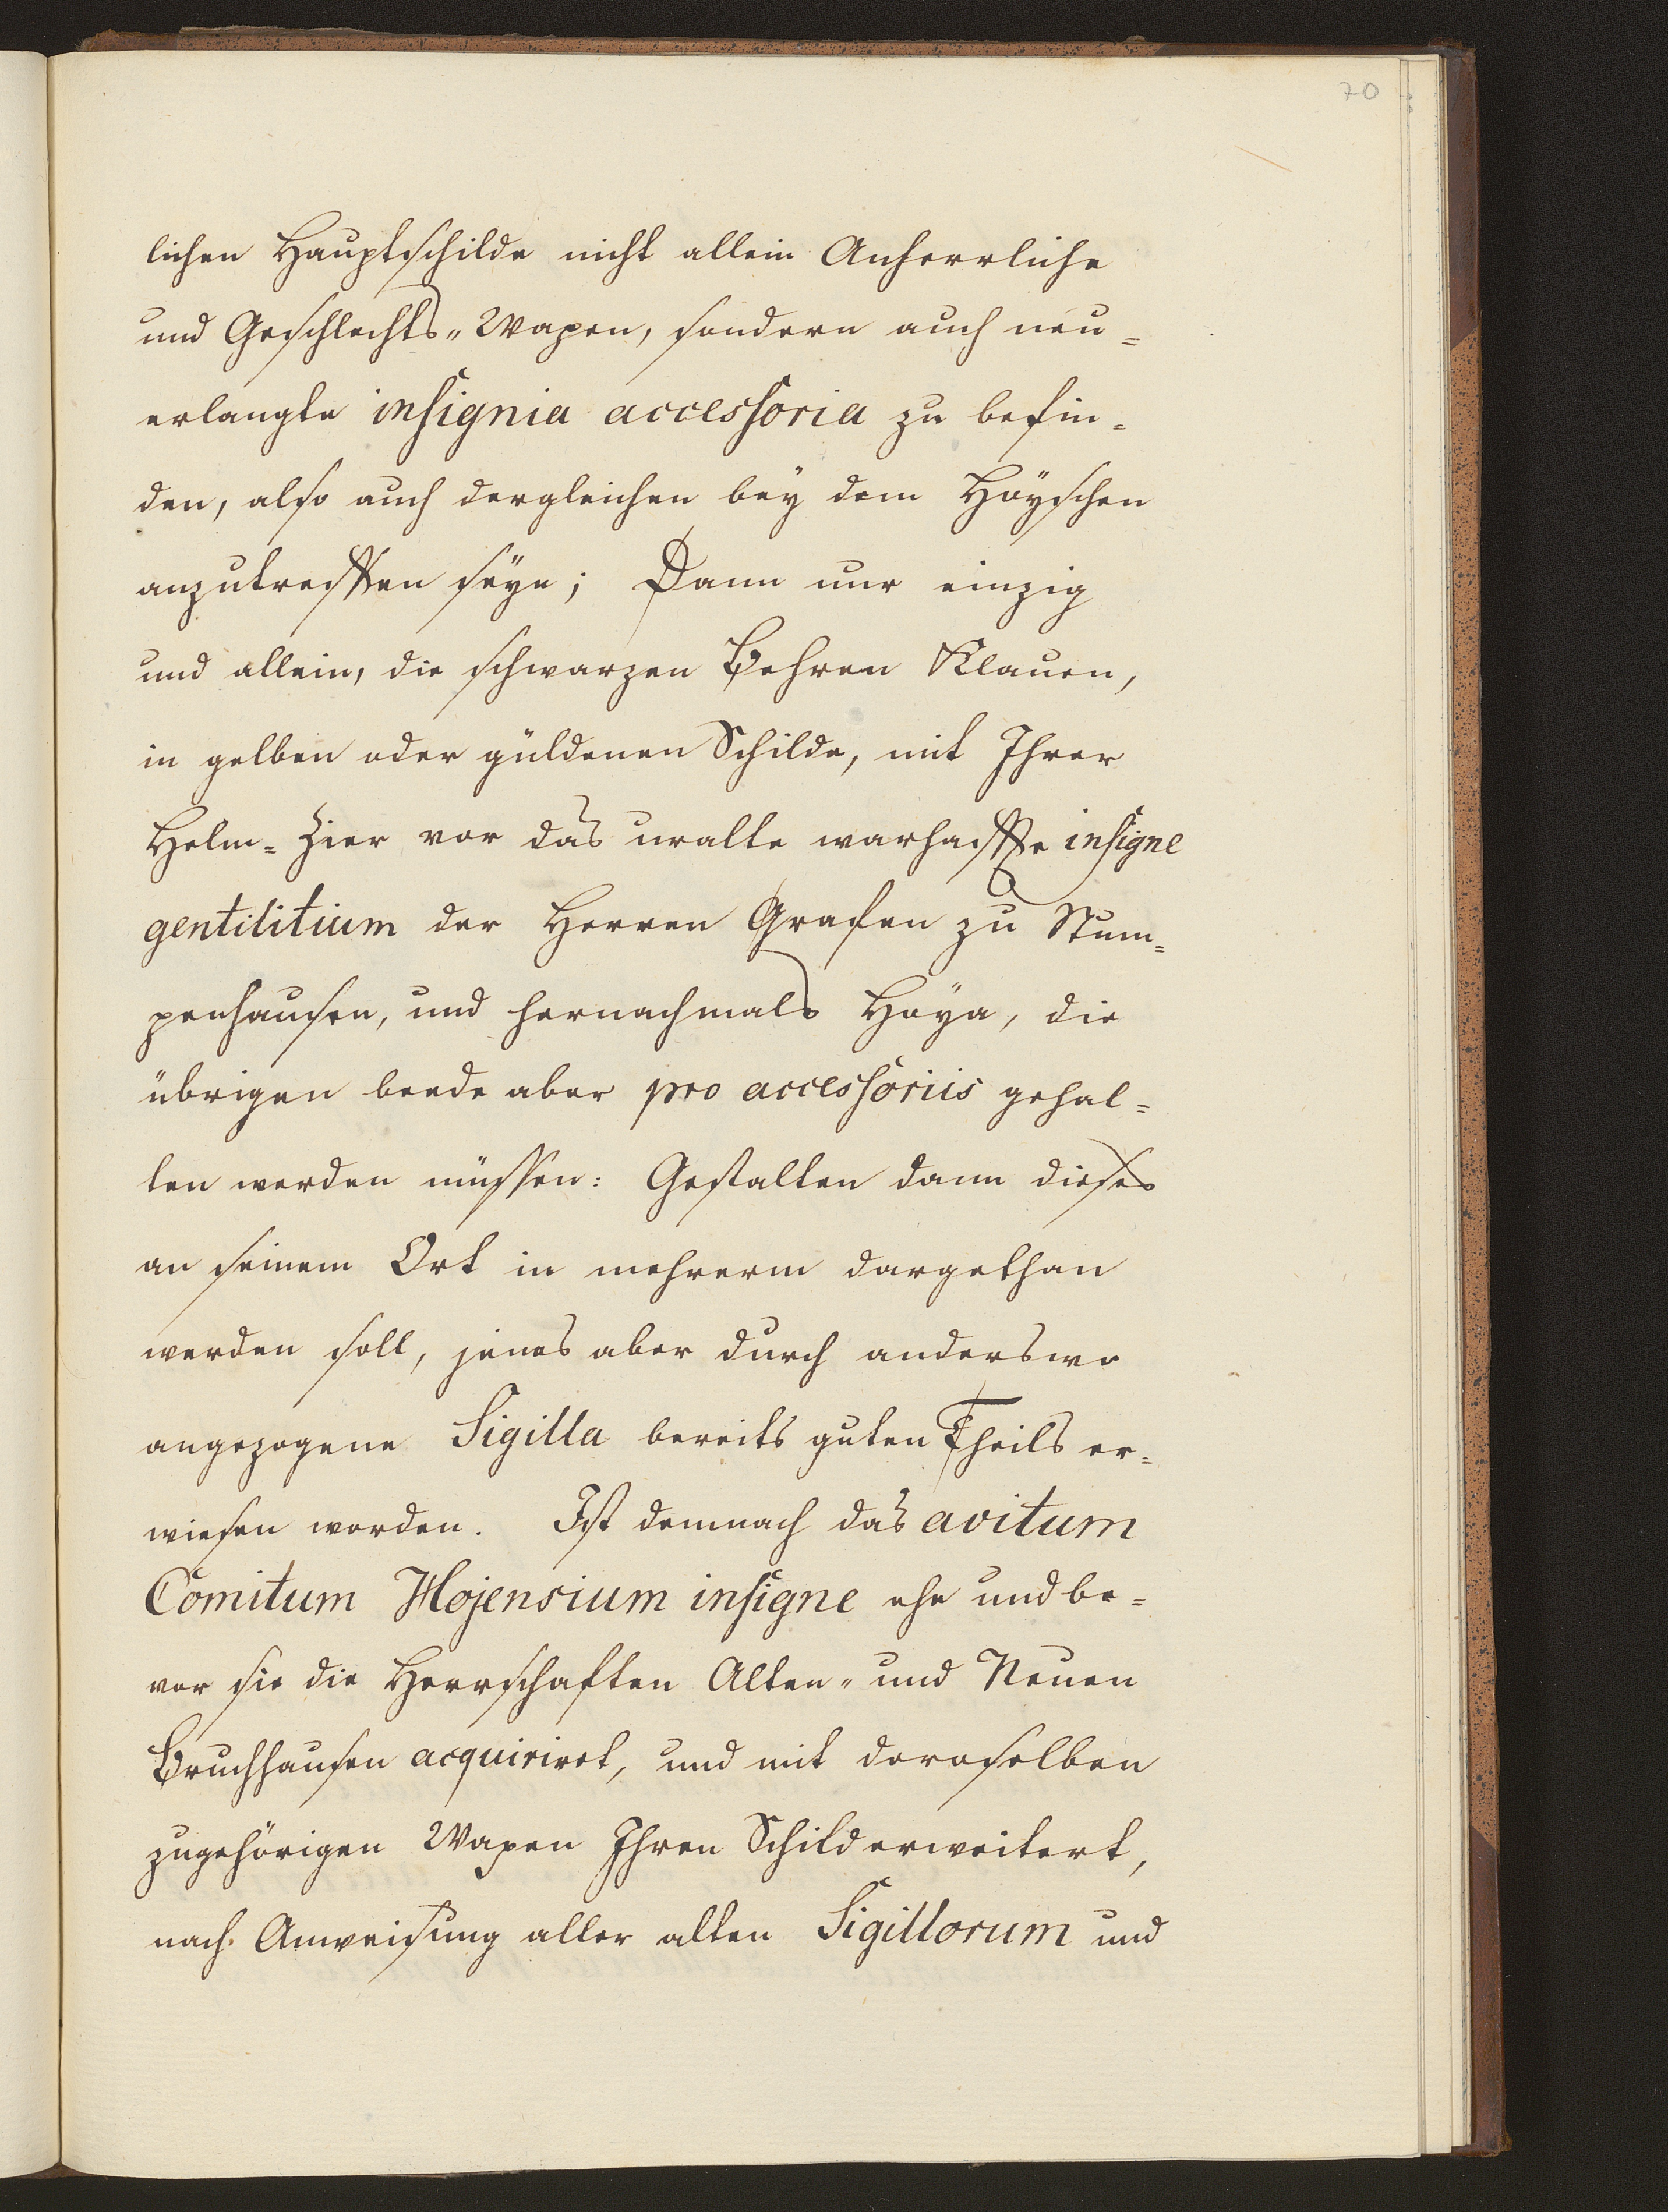 70
lichen Hauptschilde nicht allein Anherrliche
und Geschlechts„Wapen, sondern auch neu=
erlangte insignia accessoria zu befin=
den, also auch dergleichen bey dem Hoyschen
anzutreffen seye; Dann nur einzig
und allein, die schwarzen Behren Klauen,
in gelben oder güldenen Schilde, mit Ihrer
Helm=Zier vor das uralte warhaffte insigne
gentilitium der Herren Grafen zu Stum=
penhausen, und hernachmals Hoya, die
übrigen beede aber pro accessoriis gehal=
ten werden müssen: Gestalten dann dieses
an seinem Ort in mehrerm dargethan
werden soll, jenes aber durch anderswo
angezogene Sigilla bereits guten Theils er=
wiesen worden. Ist demnach das avitum
Comitum Hojensium insigne ehe und be=
vor sie die Herrschaften Alten„ und Neuen
Bruchhausen acquiriret, und mit deroselben
zugehörigen Wapen Ihren Schild erweitert,
nach Anweisung aller alten Sigillorum und